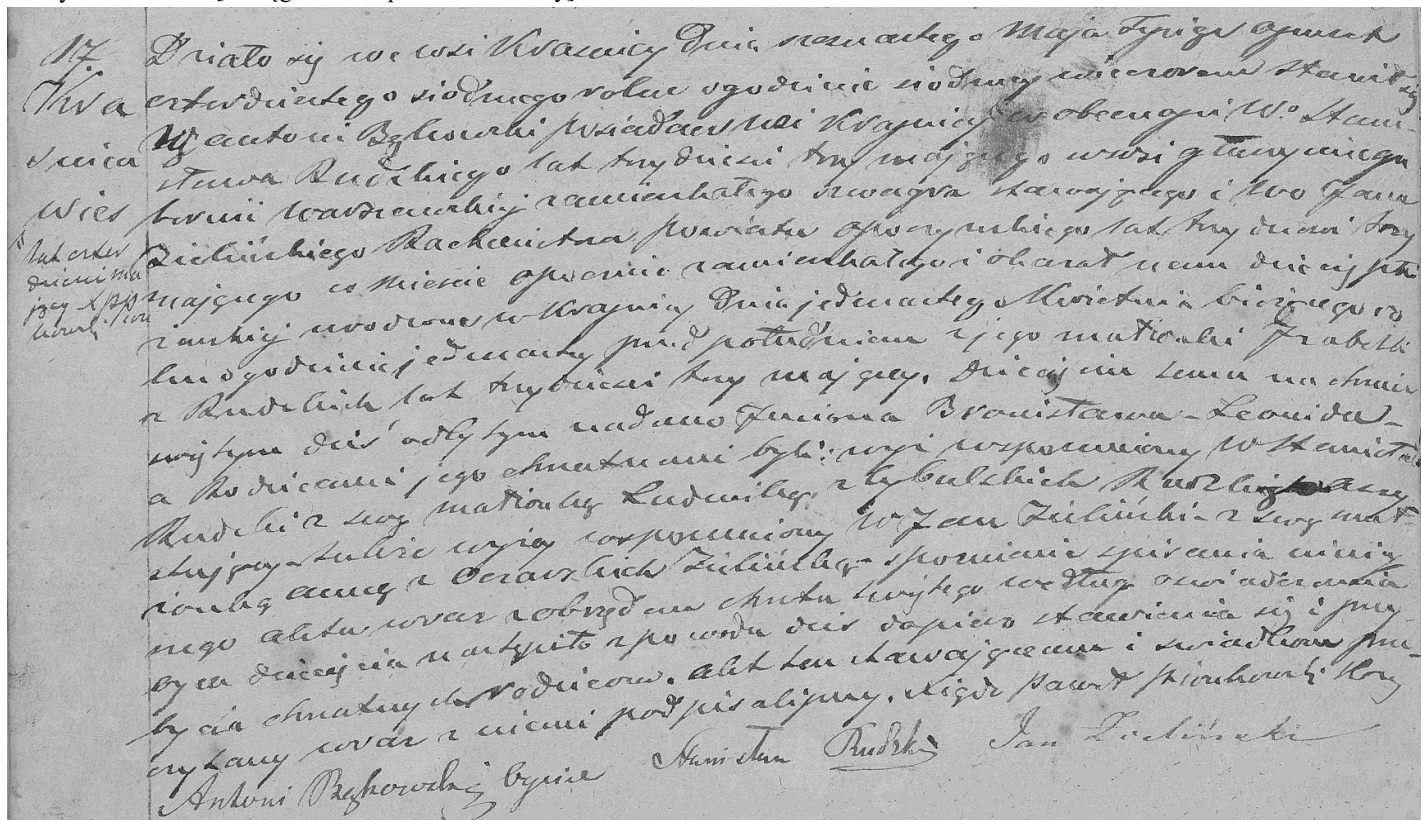 17. Działo się we wsi Krasnicy Dnia szesnastego Maja Tysiąc ośmset
Kra czterdziestego siódmego roku o godzinie siódmej wieczorem Stawił się
W. Antoni Bąkowski posiadacz wsi Krasnicy w obecności Wo Stani-
snica sława Rudzkiego lat trzydzieści trzy mającego w wsi
wieś bernii Warszawskiej zamieszkałego szwagra stawającego i Wo Jana
lat czter Zielińskiego Rachmistrza powiatu opoczyńskiego lat trzydzieści trzy
dzieści ma mającego w Mieście Opocznie zamieszkałego i okazał nam dziecię płci
jący żeńskiej urodzone w Krasnicy Dnia jedenastego Kwietnia bieżącego ro
ku o godzinie jedenastej przed południem z jego małżonki Izabelli
z Rudzkich lat trzydzieści trzy mającej. Dziecięciu temu na chrzcie
świętym dziś odbytym nadano Imiona Bronisława-Leonida-
a Rodzicami jego chrzestnemi byli: wyż wspomniony W Stanisław
Rudzki z swą małżonką Ludwiką z Cybulskich Rudzką
tudzież wyżej wspomniony W Jan Zieliński z swą mał-
żonką Anną z Oczarskich Zielińską- spóźnienie spisania niniej
szego aktu wraz z obrzędem chrztu świętego według oświadczenia
ojca dziecięcia nastąpiło z powodu dziś dopiero stawienia się i przy-
bycia chrzestnych rodziców. Akt ten stawającemu i świadkom prze-
czytany wraz z niemi podpisaliśmy. Xiądz Paweł Pionkowski
Antoni Bąkowski ojciec Stanisław Rudzki Jan Zieliński